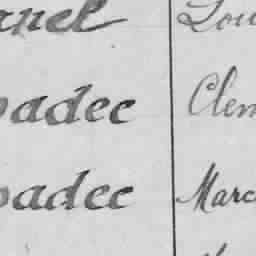 anel Lou
badec Clem
badec Marc